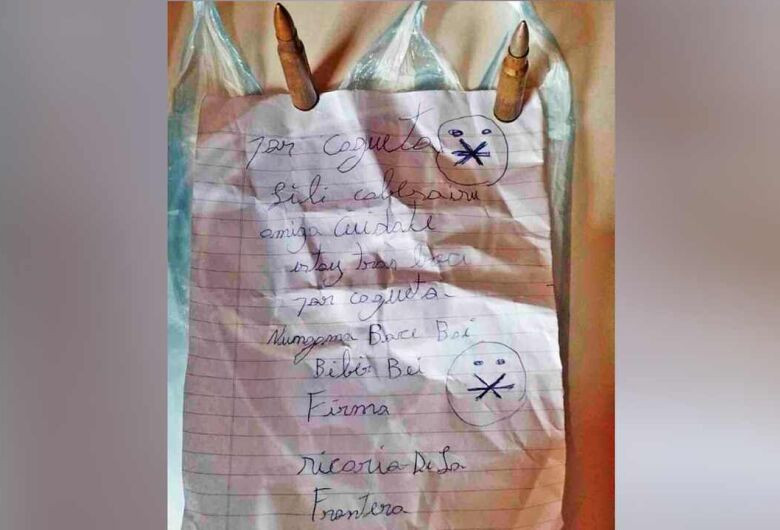 por coqueta
Lili cabesairu
amiga cuidate
estoy tras boci
por coqueta
Nungama Bace Boi
Bibir Bei
Firma
ricaria De La
Frontera